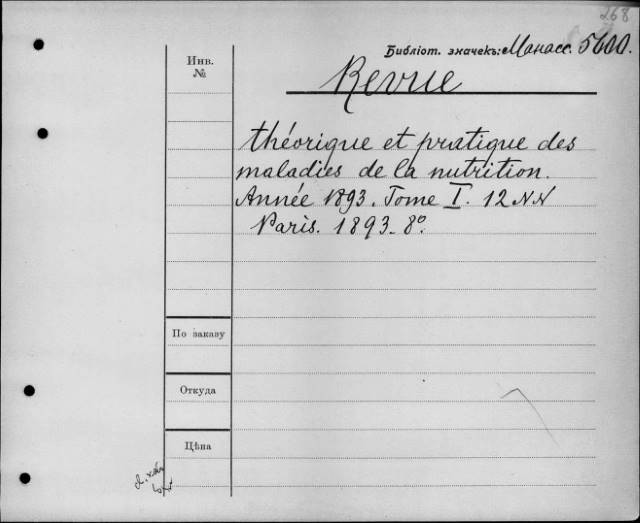 268
Библіот. значекъ: Манасс. 5600.
Инв.
№
Revue
théorique et pratique des
maladies de la nutrition.
Année 1893. Tome I. 12 NN
Paris. 1893. 8º.
По заказу
Откуда
Цѣна